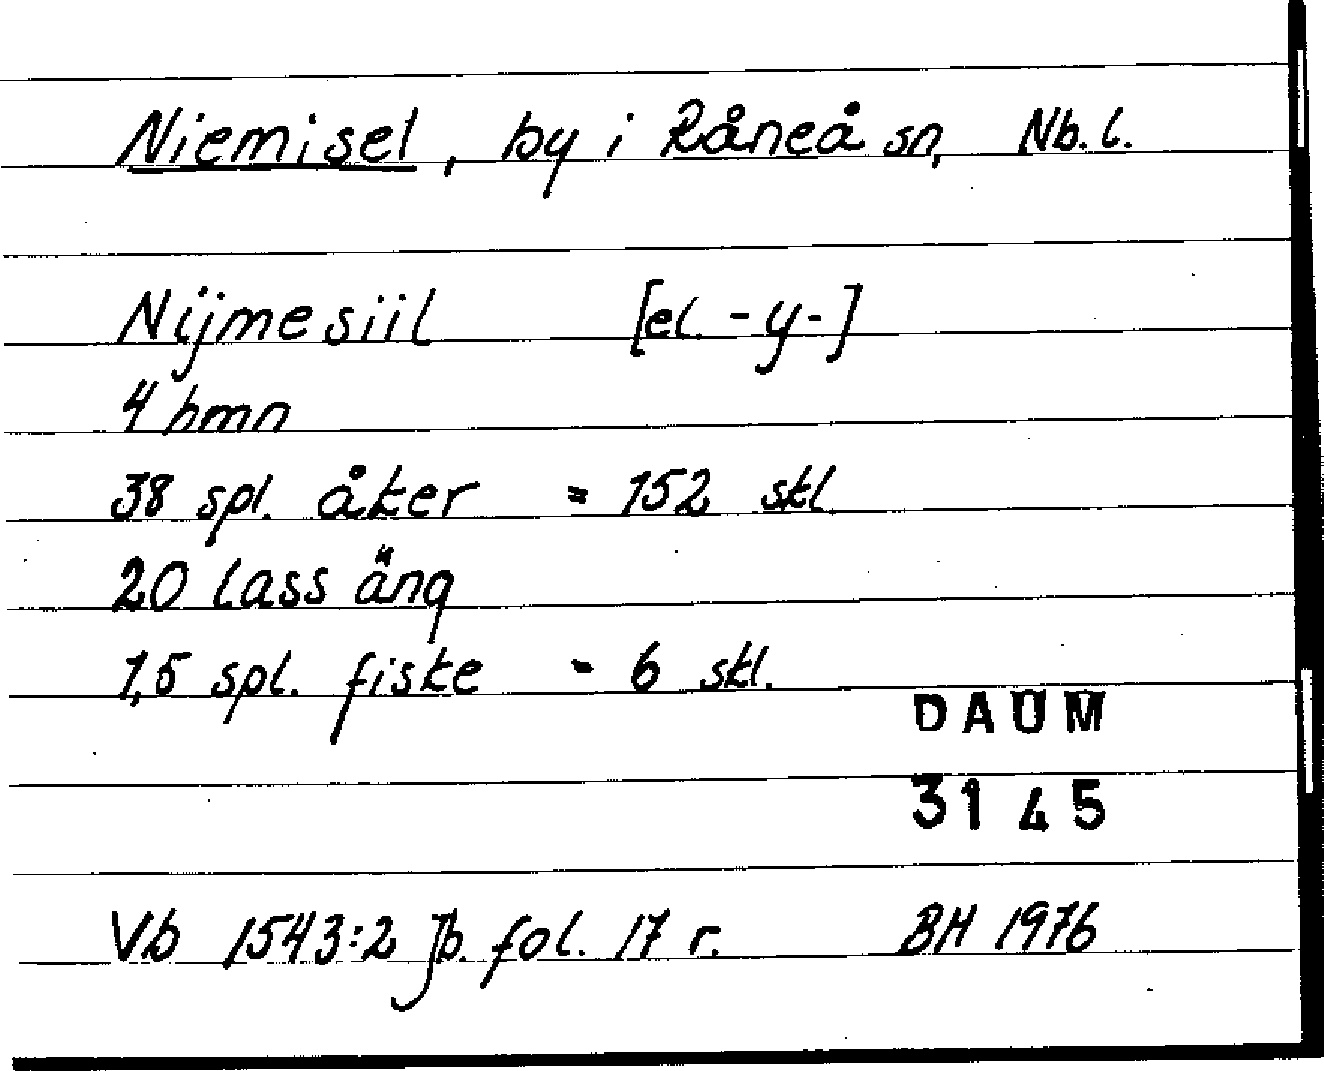 Niemisel, by i Råneå sn, Nb. l.
Nijmesiil [el. -y-]
4 hmn
38 spl. åker = 152 skl
20 lass äng
1,5 spl. fiske = 6 skl.
DAUM
3145
Vb 1543:2 Jb. fol. 17 r. BH 1976